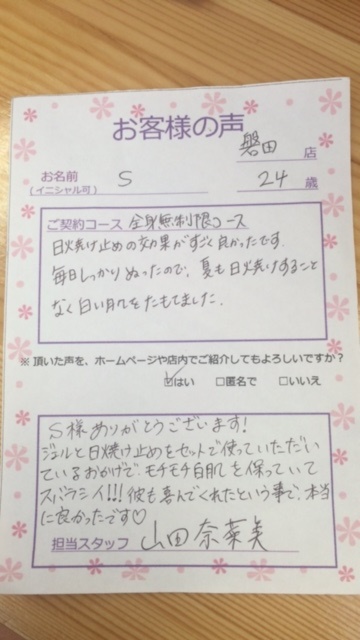 お客様の声
磐田 店
お名前
(イニシャル可) S 24 歳
ご契約コース 全身無制限コース
日焼け止めの効果がすごく良かったです.
毎日しっかりぬったので、夏も日焼けすること
なく白い肌をたもてました.
※ 頂いた声を、ホームページや店内でご紹介してもよろしいですか?
☑はい □匿名で □いいえ
S様ありがとうございます!
ジェルと日焼け止めをセットで使っていただい
ているおかげで、モチモチ白肌を保っていて
スバラシイ!!!彼も喜んでくれたという事で、本当
に良かったです♡
担当スタッフ 山田奈菜美